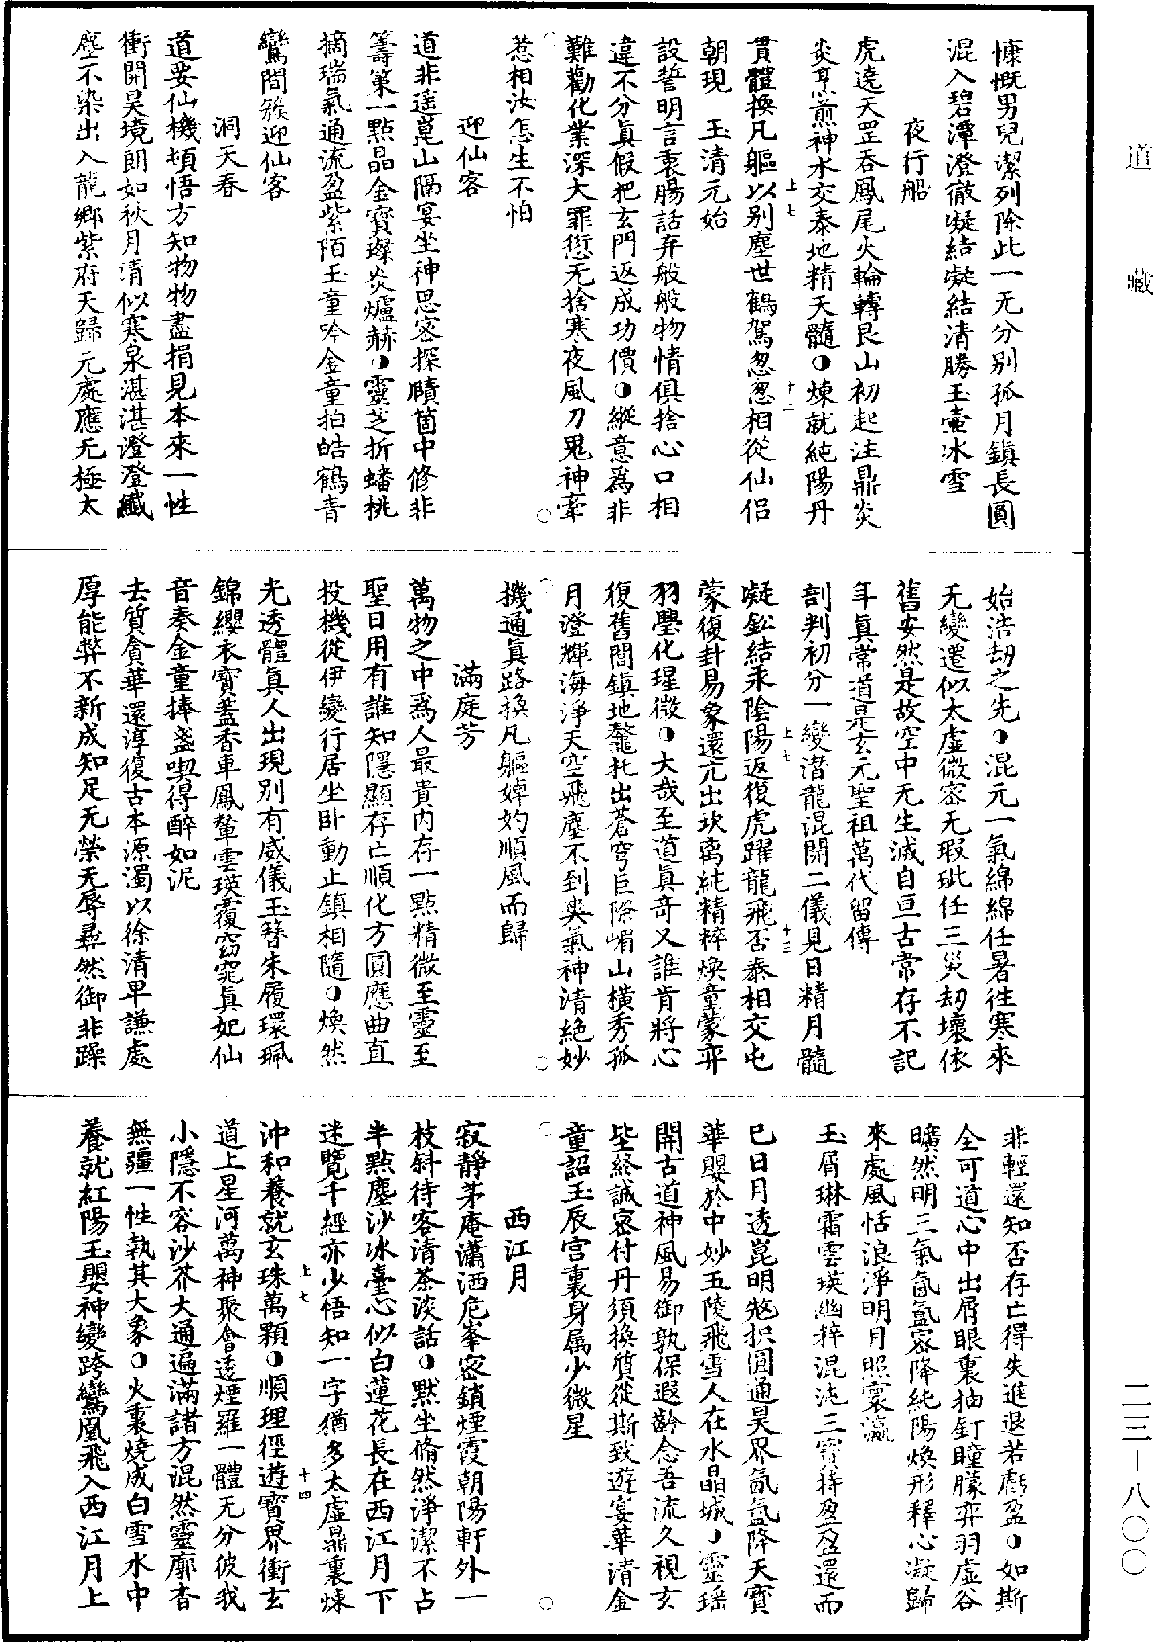 道藏
二三—八〇〇
慷慨男兒潔列除此一无分别孤月鎮長圓
混入碧潭澄徹凝結凝結清勝玉壷冰雪
夜行船
虎遶天罡吞鳳尾火輪轉艮山初起注鼎炎
炎烹煎神水交泰地精天髓○煉就純陽丹
上七
十二
貫體換凡軀以别塵世鶴駕怱怱相從仙侣
朝現玉清元始
設誓明言衷腸話弃般般物情俱捨心口相
違不分真假把玄門返成功價○縱意為非
難勸化業深大罪愆无捨寒夜風刀鬼神牽
惹相汝怎生不怕
迎仙客
道非遥崑山隔宴坐神思密探賾箇中修非
籌第一點晶金寳璨炎爐赫○靈芝折蟠桃
摘瑞氣通流盈紫陌玉童吟金童拍皓鶴青
鸞閤簇迎仙客
洞天春
道妥仙機頓悟方知物物盡捐見本來一性
衝開昊境朗如秋月清似寒泉湛湛澄澄纖
塵不染出入龍鄉紫府天歸元處應无極太
始浩劫之先○混元一氣綿綿任暑往寒來
无變遷似太虚微密无瑕玼任三災劫壞依
舊安然是故空中无生滅自亘古常存不記
年真常道是玄元聖祖萬代留傳
剖判初分一變潜龍混開二儀見日精月髓
上七
十三
凝鈆結汞陰陽返復虎躍龍飛否泰相交屯
蒙復卦易象還元出坎离純精粹煥童蒙弈
羽壆化瑆微○大哉至道真奇又誰肯將心
復舊閤鎮地鼇托出蒼穹巨隂嵋山横秀孤
月澄輝海淨天空飛塵不到奐氣神清絶妙
機通真路換凡軀婥妁順風而歸
滿庭芳
萬物之中爲人最貴内存一點精微至靈至
聖日用有誰知隱顯存亡順化方圓應曲直
投機從伊變行居坐卧動止鎮相隨○煥然
光透體真人出現别有威儀玉簪朱履環珮
錦纓衣寳蓋香車鳳輦雲璞覆窈窕真妃仙
音奏金童捧盞喫得醉如泥
去質貪華還淳復古本源濁以徐清早謙處
厚能弊不新成知足无榮无辱彛然御非躁
非輕還知否存亡得失進退若虧盈○如斯
全可道心中出屑眼裏抽釘瞳朦弈羽虚谷
曠然明三氣氤氲密降純陽煥形釋心凝歸
來處風恬浪淨明月照寰瀛
玉屑琳霜雲瑛幽粹混沌三寳持盈盈還而
已日月透崑明憨拱圓通昊界氤氲降天寳
華嬰於中妙五陵飛雪人在水晶城○靈瑶
開古道神風易御孰保遐齡念吾流久視玄
㘴絵誠密付丹須換質從斯致遊宴華清金
童詔玉辰宫裏身属少微星
西江月
寂靜茅庵瀟洒危峯密鎖煙霞朝陽軒外一
枝斜待客清茶淡話○默坐脩然淨潔不占
半點塵沙冰臺心似白蓮花長在西江月下
迷覽千經亦少悟知一字猶多太虚鼎裏煉
上七
十四
沖和養就玄珠萬顆○順理徑遊寳界衝玄
道上星河萬神聚會透煙羅一體无分彼我
小隱不容沙芥大通遍滿諸方混然靈廓杳
無疆一性執其大象○火裏燒成白雪水中
養就紅陽玉嬰神變跨鸞凰飛入西江月上